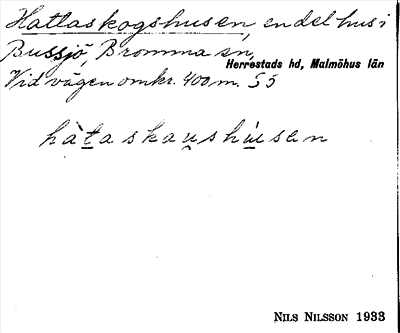 Hattaskogshusen, en del hus i
Bussjö, Bromma sn,
Herrestads hd, Malmöhus län
Vid vägen omkr. 400 m. SS
hàtaskaushúsen
NILS NILSSON 1933